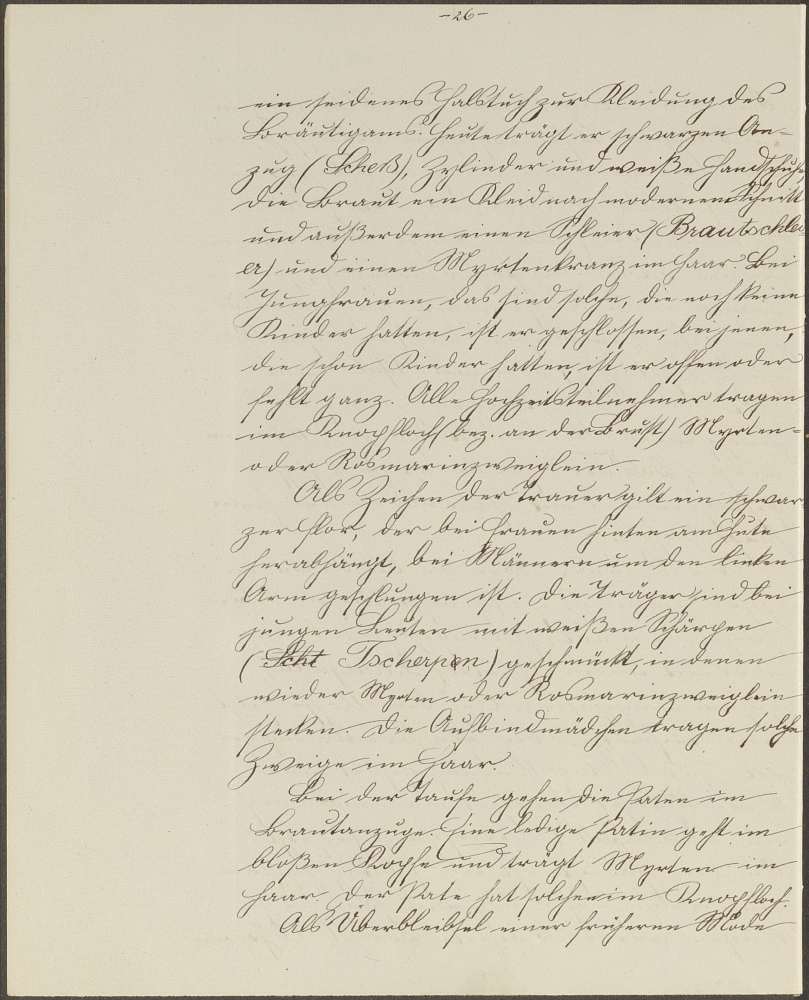 -26-
ein seidenes Halstuch zur Kleidung des
Bräutigams. Heute trägt er schwarzen An-
zug (Scheß), Zylinder und weiße Handschuhe,
die Braut ein Kleid nach modernem Schnitt
und außerdem einen Schleier (Brautschlei-
er) und einen Myrtenkranz im Haar. Bei
Jungfrauen, das sind solche, die noch keine
Kinder hatten, ist er geschlossen, bei jenen,
die schon Kinder hatten, ist er offen oder
fehlt ganz. Alle Hochzeitsteilnehmer tragen
im Knopfloch (bez. an der Brust) Myrten-
oder Rosmarinzweiglein.
Als Zeichen der Trauer gilt ein schwar-
zer Flor, der bei Frauen hinten am Hute
herabhängt, bei Männern um den linken
Arm geschlungen ist. Die Träger sind bei
jungen Leuten mit weißen Schärpen
(Scht Tscherpen) geschmückt, in denen
wieder Myrten oder Rosmarinzweiglein
stecken. Die Aufbindmädchen tragen solche
Zweige im Haar.
Bei der Taufe gehen die Paten im
Brautanzuge. Eine ledige Patin geht im
bloßen Kopfe und trägt Myrten im
Haar. Der Pate hat solche im Knopfloch.
Als Überbleibsel einer früheren Mode